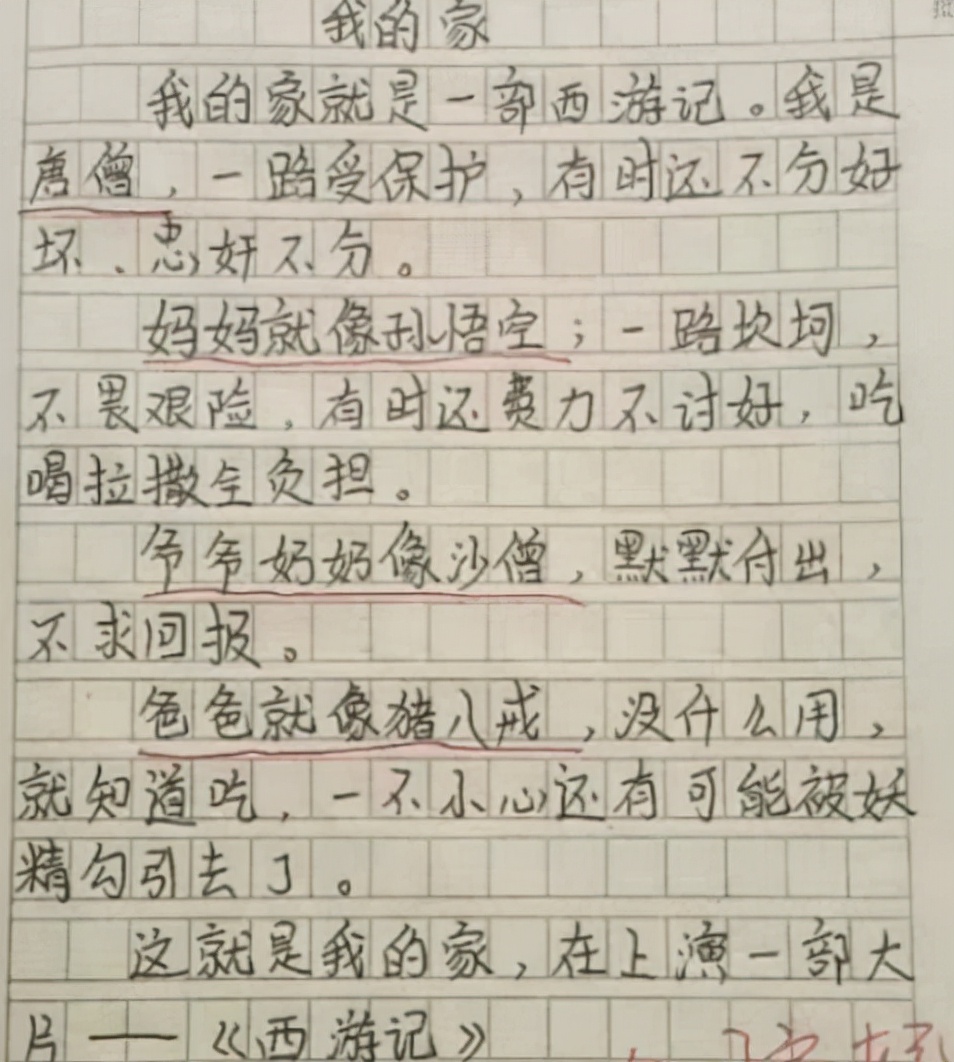 我的家
我的家就是一部西游记。我是
唐僧，一路受保护，有时还不分好
坏、忠奸不分。
妈妈就像孙悟空；一路坎坷，
不畏艰险，有时还费力不讨好，吃
喝拉撒全负担。
爷爷奶奶像沙僧，默默付出，
不求回报。
爸爸就像猪八戒，没什么用，
就知道吃，一不小心还有可能被妖
精勾引去了。
这就是我的家，在上演一部大
片——《西游记》